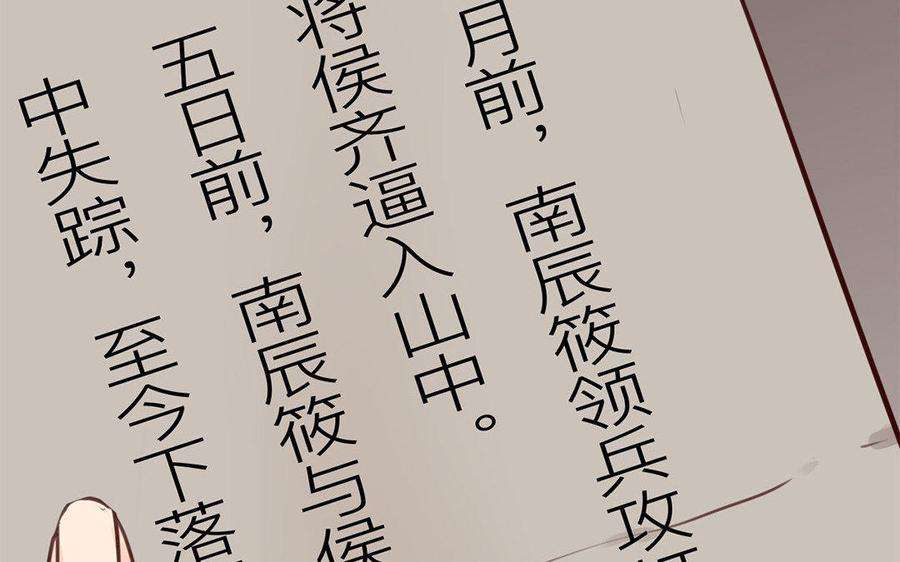 月前，南辰筱领兵攻
将侯齐逼入山中。
五日前，南辰筱与侯
中失踪，至今下落